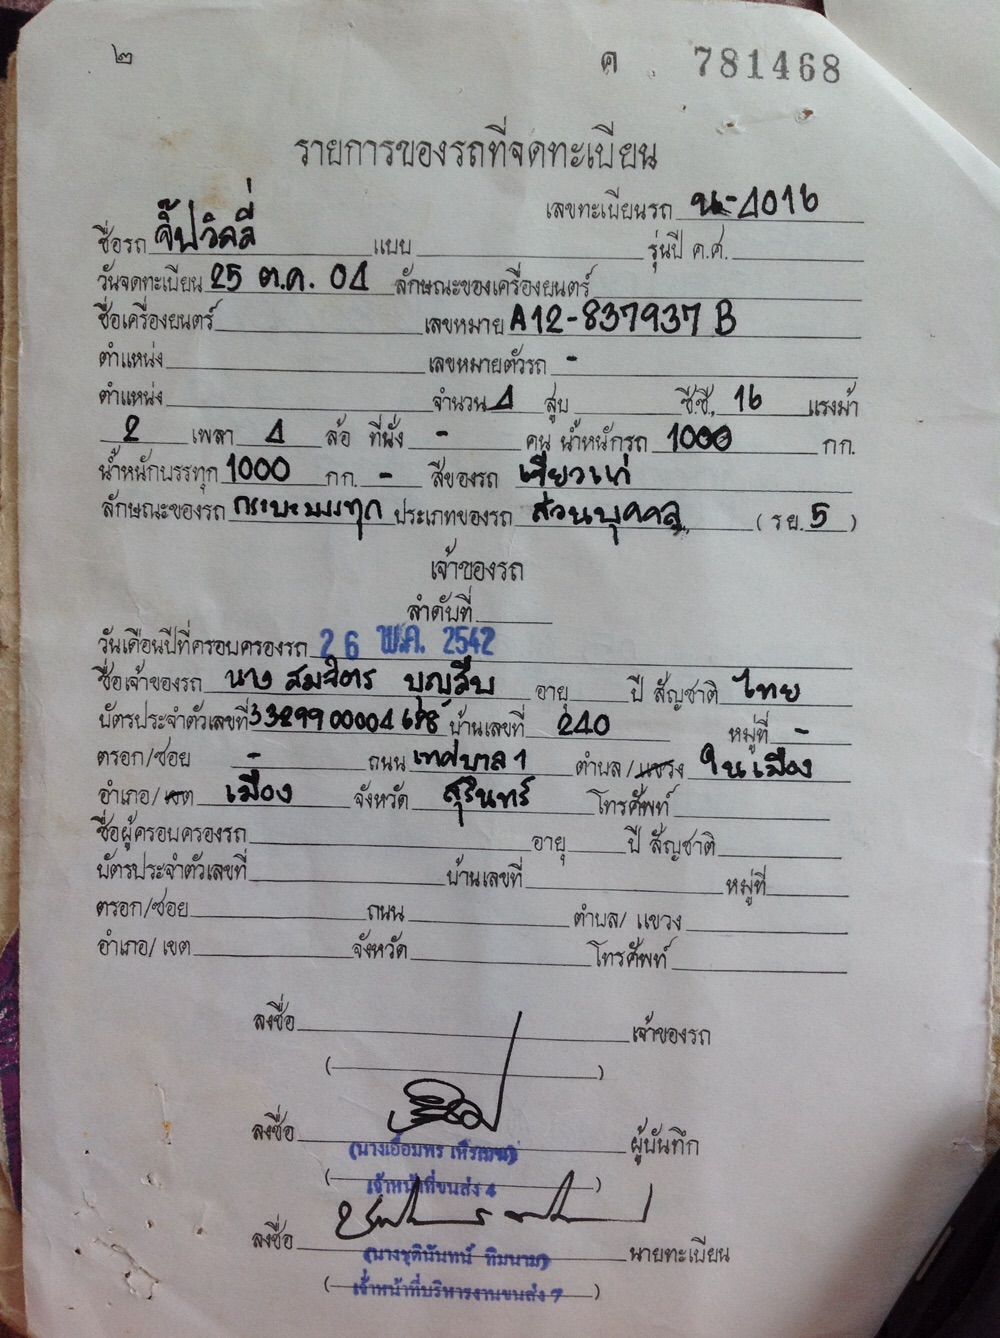 ๒ ค 781468
รายการของรถที่จดทะเบียน
เลขทะเบียนรถ น-4016
ชื่อรถ จี๊ปวิลลี่ แบบ รุ่นปี ค.ศ.
วันจดทะเบียน 25 ต.ค. 04 ลักษณะของเครื่องยนตร์
ชื่อเครื่องยนตร์ เลขหมาย A12-837937 B
ตำแหน่ง เลขหมายตัวรถ -
ตำแหน่ง จำนวน 4 สูบ ซี.ซี., 16 แรงม้า
2 เพลา 4 ล้อ ที่นั่ง - คน น้ำหนักรถ 1000 กก.
น้ำหนักบรรทุก 1000 กก. - สีของรถ เขียวแก่
ลักษณะของรถ กระบะบรรทุก ประเภทของรถ ส่วนบุคคล (รย. 5)
เจ้าของรถ
ลำดับที่
วันเดือนปีที่ครอบครองรถ 26 พ.ค. 2542
ชื่อเจ้าของรถ นาง สมจิตร บุญสืบ อายุ ปี สัญชาติ ไทย
บัตรประจำตัวเลขที่ บ้านเลขที่ 240 หมู่ที่ -
ตรอก/ซอย - ถนน เทศบาล 1 ตำบล/แขวง ในเมือง
อำเภอ/เขต เมือง จังหวัด สุรินทร์ โทรศัพท์
ชื่อผู้ครอบครองรถ อายุ ปี สัญชาติ
บัตรประจำตัวเลขที่ บ้านเลขที่ หมู่ที่
ตรอก/ซอย ถนน ตำบล/แขวง
อำเภอ/เขต จังหวัด โทรศัพท์
ลงชื่อ เจ้าของรถ
( )
ลงชื่อ ผู้บันทึก
(นางเอื้อมพร
เจ้าหน้าที่ขนส่ง 4
ลงชื่อ นายทะเบียน
(นางชุตินันทน์ ทิมนาม)
(เจ้าหน้าที่บริหารงานขนส่ง 7)